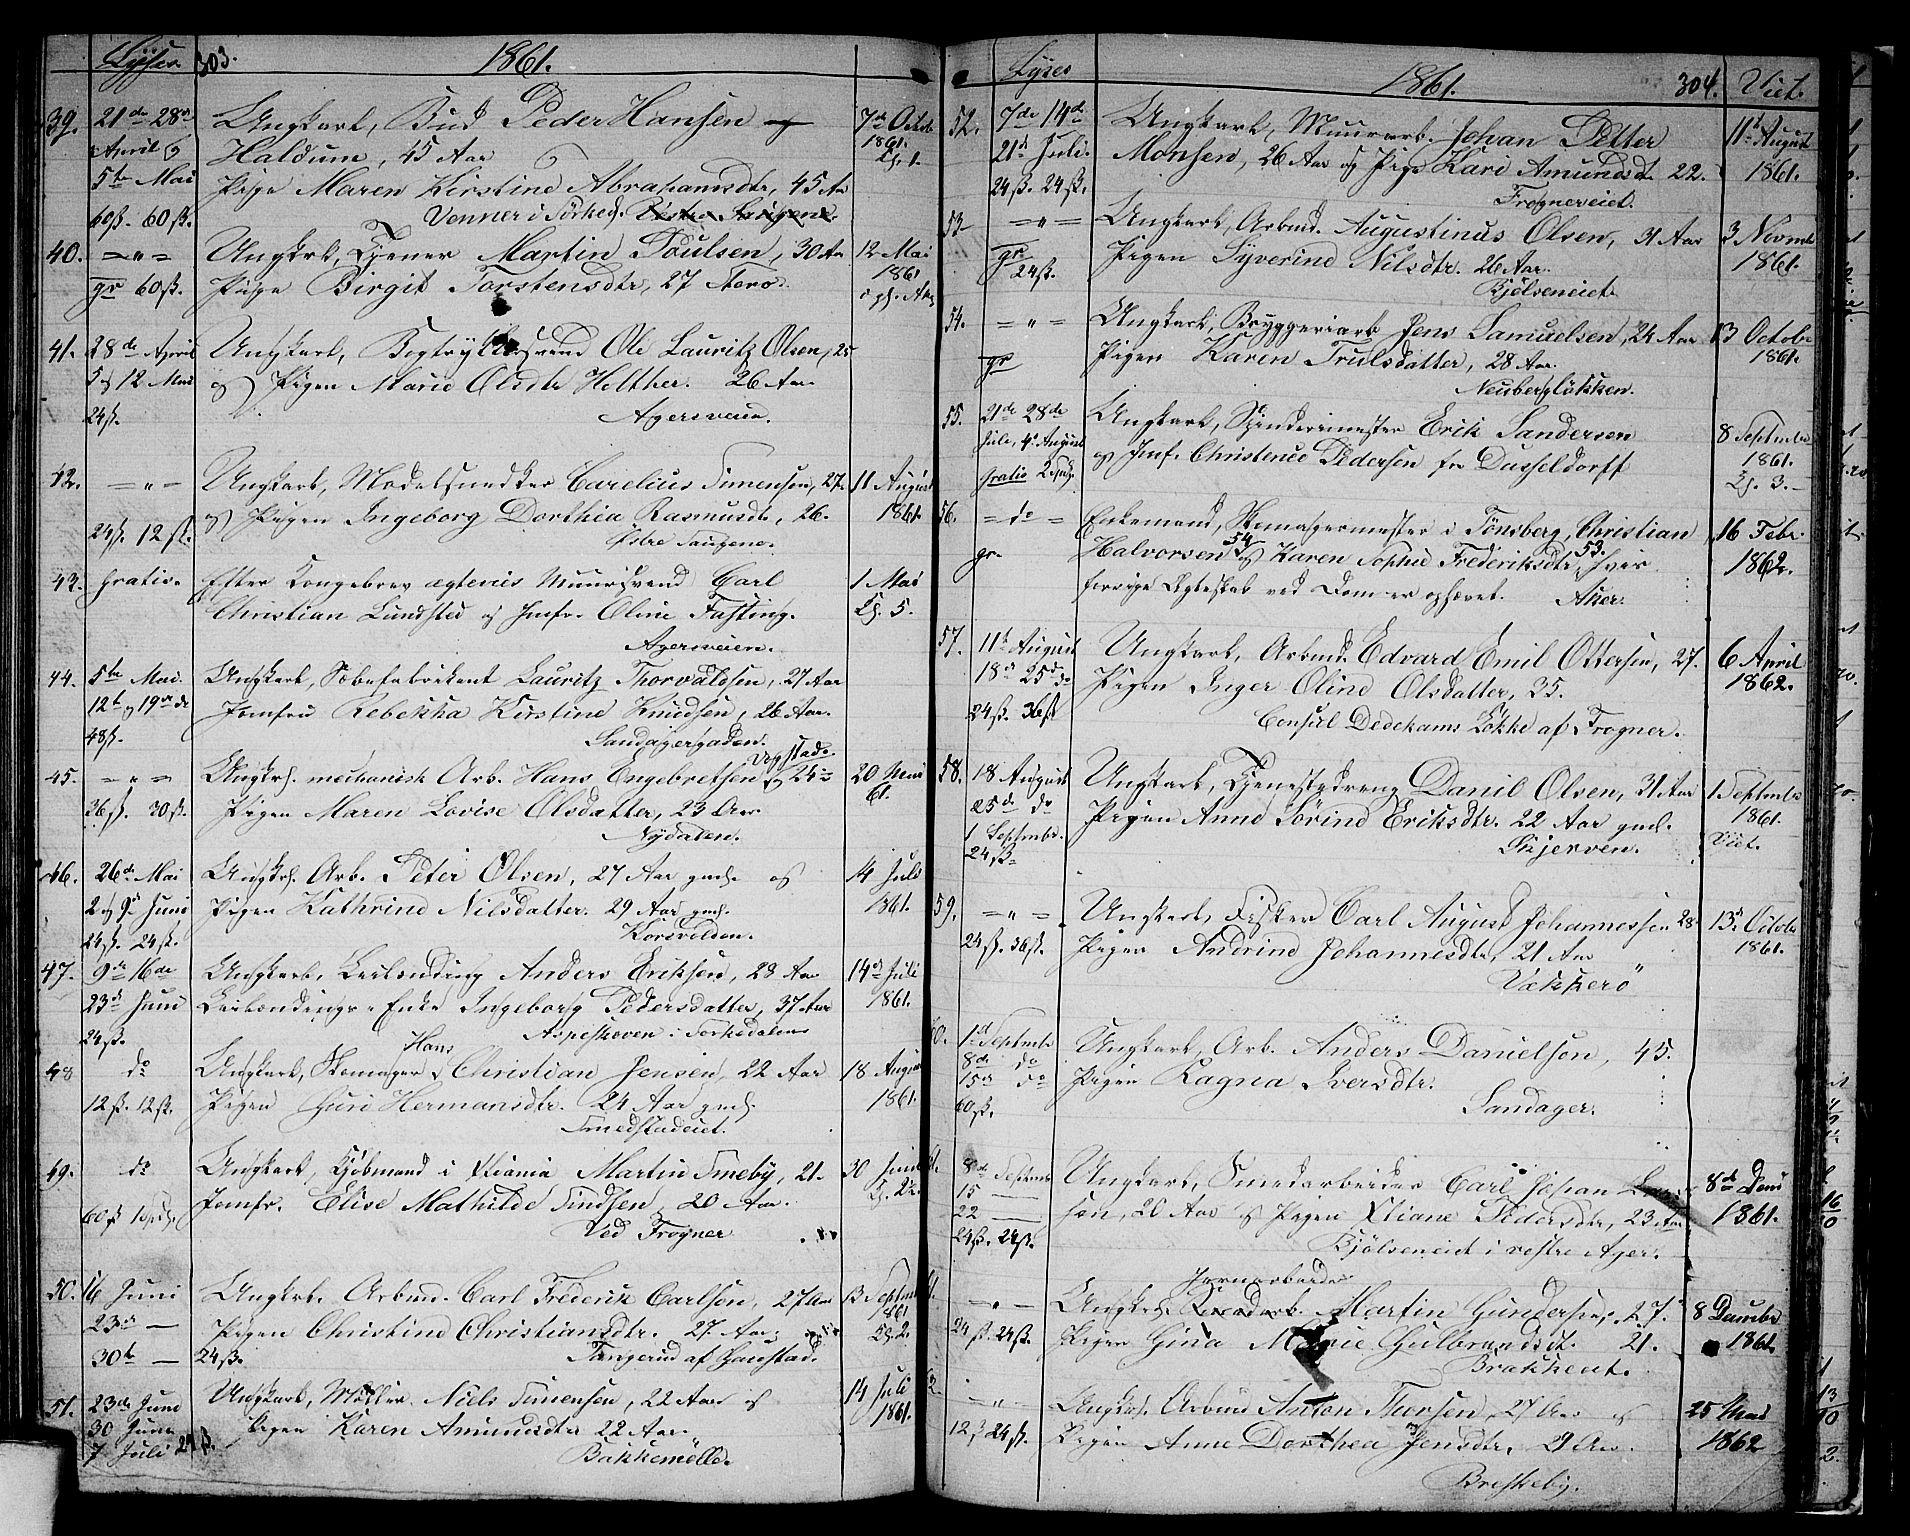 Lyses 303. 1861.
39. 21de 28de Ungkarl, Bud Peder Hansen 7de Octob
April & Haldum, 45 Aar 1861.
5te Mai Pige Maren Kirstine Abrahamsdtr, 45 Aar
60ß. 60ß. Venner i Sørkeds. Vestre Saugene.
40. "  Ungkrl, Tjener Martin Poulsen, 30 Aar 12 Mai
gr 60ß. Pige Birgit Torstensdtr, 27 1861
41. 28de April Ungkarl, Bogtrykkersvend Ole Lauritz Olsen, 25
5 & 12 Mai og Pigen Marie Olsdtr Holther. 26 Aar
24ß. Agersveien.
42. " Ungkarl, Modelsnedker Carelius Simensen, 27. 11 August
24ß. 12ß. og Pigen Ingeborg Dorthea Rasmusdtr, 26. 1861.
Østre Saugene.
43. Gratis. Efter Kongebrev ægtevies Muursvend Carl 1 Mai
Christian Lundsted og Jomfr. Oline Fasting. 5.
Agersveien.
44. 5te Mai Ungkarl, Sæbefabrikant Lauritz Thorvaldsen, 27 Aar
12te & 19de do Jomfru Rebekka Kirstine Knudsen, 26 Aar.
48ß. Sandagergaden.
45. " Ungkrl. mechanisk Arb. Hans Engebretsen & 24 20 Mai
36ß. 30ß. Pigen Maren Lovise Olsdatter, 23 Aar 61.
Nydalen.
46. 26de Mai Ungkrl. Arb. Peter Olsen, 27 Aar gml. og 14 Juli
2 & 9de Juni Pigen Kathrine Nilsdatter. 29 Aar gml. 1861.
24ß. 24ß. Korsvolden.
47. 9de 16de Ungkarl, Leilænding Anders Eriksen, 28 Aar 14de Juli
23de Juni Leilændings Enke Ingeborg Pedersdatter, 37 Aar 1861.
24ß. Aspeskoven i Sørkedalen
48 do Ungkarl, Skomager Hans Christian Jensen, 22 Aar 18 August
12ß. 12ß. Pigen Guri Hermansdtr. 24 Aar gml. 1861.
Smedstadeiet.
49. do Ungkarl, Kjøbmand i Xtiania Martin Smeby, 21. 30 Juni
60ß Jomfr. Elise Mathilde Sindsen, 20 Aar.
Ved Frogner
50. 16 Juni Ungkrl. Arbmd. Carl Frederik Carlsen, 27 Aar 13 Septmb
23de — Pigen Christine Christiansdtr. 27. Aar 1861
30te — 24ß. Tangerud af Haugstad.
51. 23de Juni Ungkarl, Møller Niels Simensen, 22 Aar og 14 Juli
30 Juni Pigen Karen Amundsdtr 22 Aar. 1861.
7 Juli 24ß. Bakkemølle.
Lyses 1861. 304. Viet.
52. 7de 14de Ungkarl, Muurarb. Johan Petter 11te August
21de Juli. Monsen, 26 Aar og Pige Kari Amundsdtr 22. 1861.
24ß. 24ß. Frognereiet.
53. " Ungkarl, Arbmd. Augustinus Olsen, 31 Aar 3 Novmb
gr 24ß. Pigen Syverine Nilsdtr. 26 Aar. 1861.
Bjølseneiet.
54. " Ungkarl, Bryggeriarb Jens Samuelsen, 24 Aar 13 Octobr
gr Pigen Karen Trulsdatter, 28 Aar. 1861.
Neubergløkken.
55. 21de 28de Ungkarl, Spinderimester Erik Sandersen
Juli, 4de August og Jmf. Christence Pedersen fra Dusseldorff 8 Septembr
Gratis 1861.
3.
56. do Enkemand, Skomagermester i Tønsberg, Christian 16 Febr.
gr. Halvorsen 54 og Karen Sophie Frederiksdtr, 53. hvis 1862.
forrige Ægteskab ved Dom er ophævet. Aker.
57. 11te August Ungkarl, Arbmd. Edvard Emil Ottersen, 27. 6 April
18de 25de do Pigen Inger Oline Olsdatter, 35. 1862.
24ß. 36ß Consul Dedekams Løkke af Frogner.
58. 18 August Ungkarl, Tjenestedreng Daniel Olsen, 31 Aar 1 Septembr
25de do Pigen Anne Sørine Eriksdtr. 22 Aar gml. 1861.
1 Septembr. Skjerven. Viet.
24ß
59. " Ungkarl, Fisker Carl August Johannessen 28 13de Octobr
24ß. 36ß. Pigen Andrine Johannesdtr, 21 Aar 1861.
Vækkerø
60. 1de Septmbr Ungkarl, Arb. Anders Danielsen, 45.
8de do Pigen Ragna Iversdtr.
15de do Sandager.
60ß.
8de Septmbr Ungkarl, Smedarbeider Carl Johan 8de Decmb
15 — sen, 20 Aar og Pigen Xtiane Pedersdtr, 23 Aar 1861.
22 — Bjølseneiet i vestre Ager.
24ß. 24ß.
Jernarbeider
" Ungkrl. Martin Gundersen, 27. 8 Decmbr
24ß. 24ß. Pigen Gina Marie Gulbrandsdtr. 21. 1861
Brakkeiet.
" Ungkrl. Arbmd Anton Thorsen, 27 Aar og 25 Mai
12ß 24ß. Pigen Anne Dorthea Jensdtr, Aar. 1862
Breskeby.